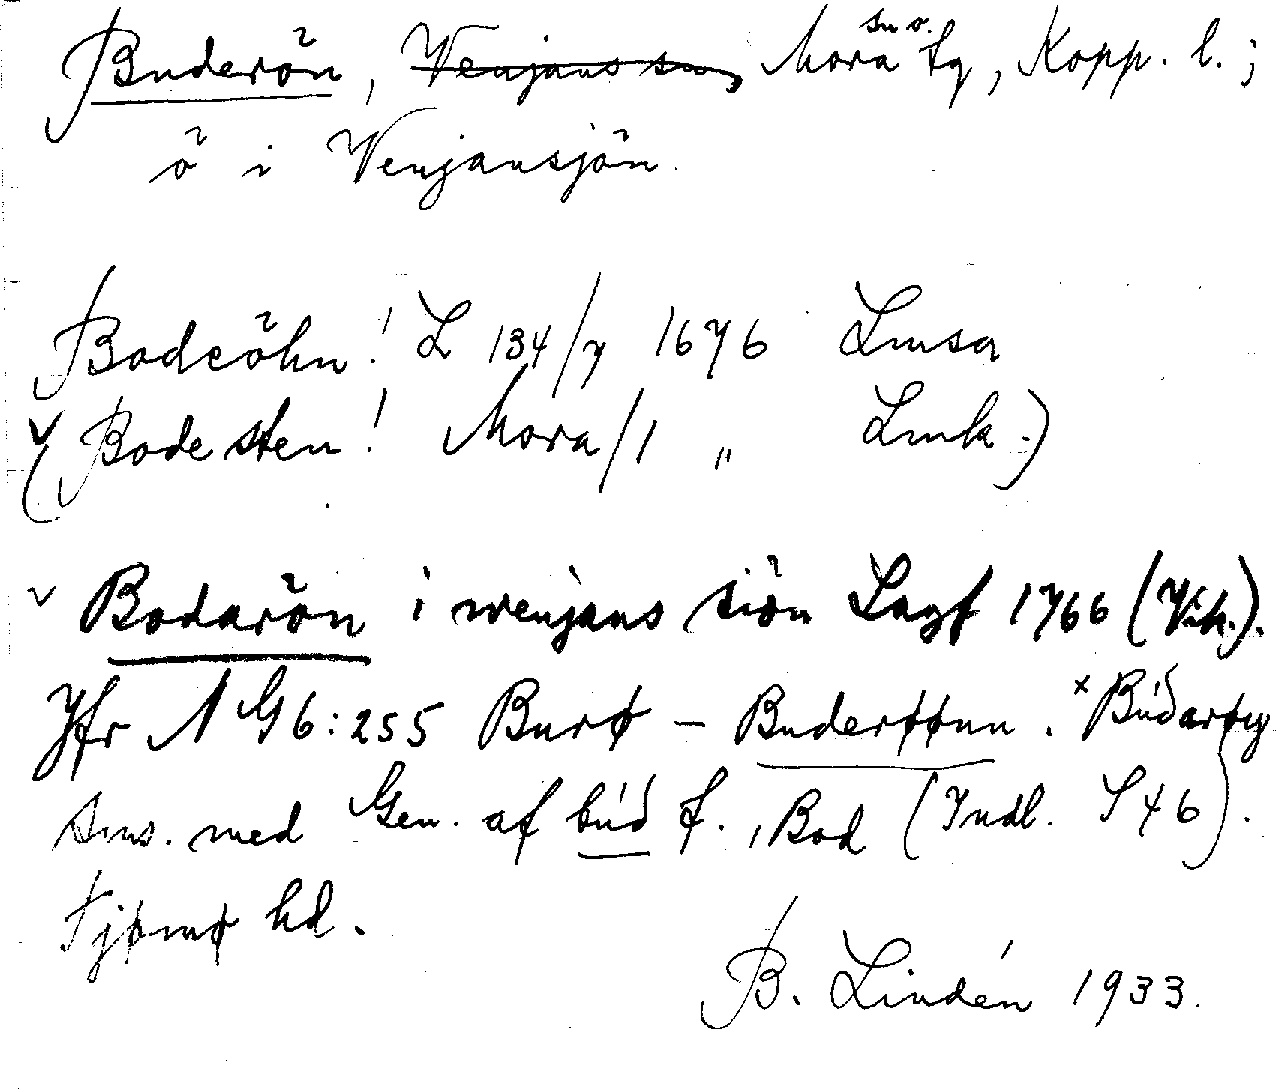 Buderön, Venjans sn, Mora sn o. tg, Kopp. l.;
ö i Venjansjön.
Bodeöhn! L 134/7 1676 Lmsa
(Bodesten! Mora/1 " Lmk.)
Bodarön i wenjans siön Lagf 1766 (Vik.).
Jfr NG 6:255 Burø – Buderøønn. ˣBúðarøy
sms. med Gen. af búð f. , Bod (Indl. S 46).
Tjømø hd.
B. Lindén 1933.